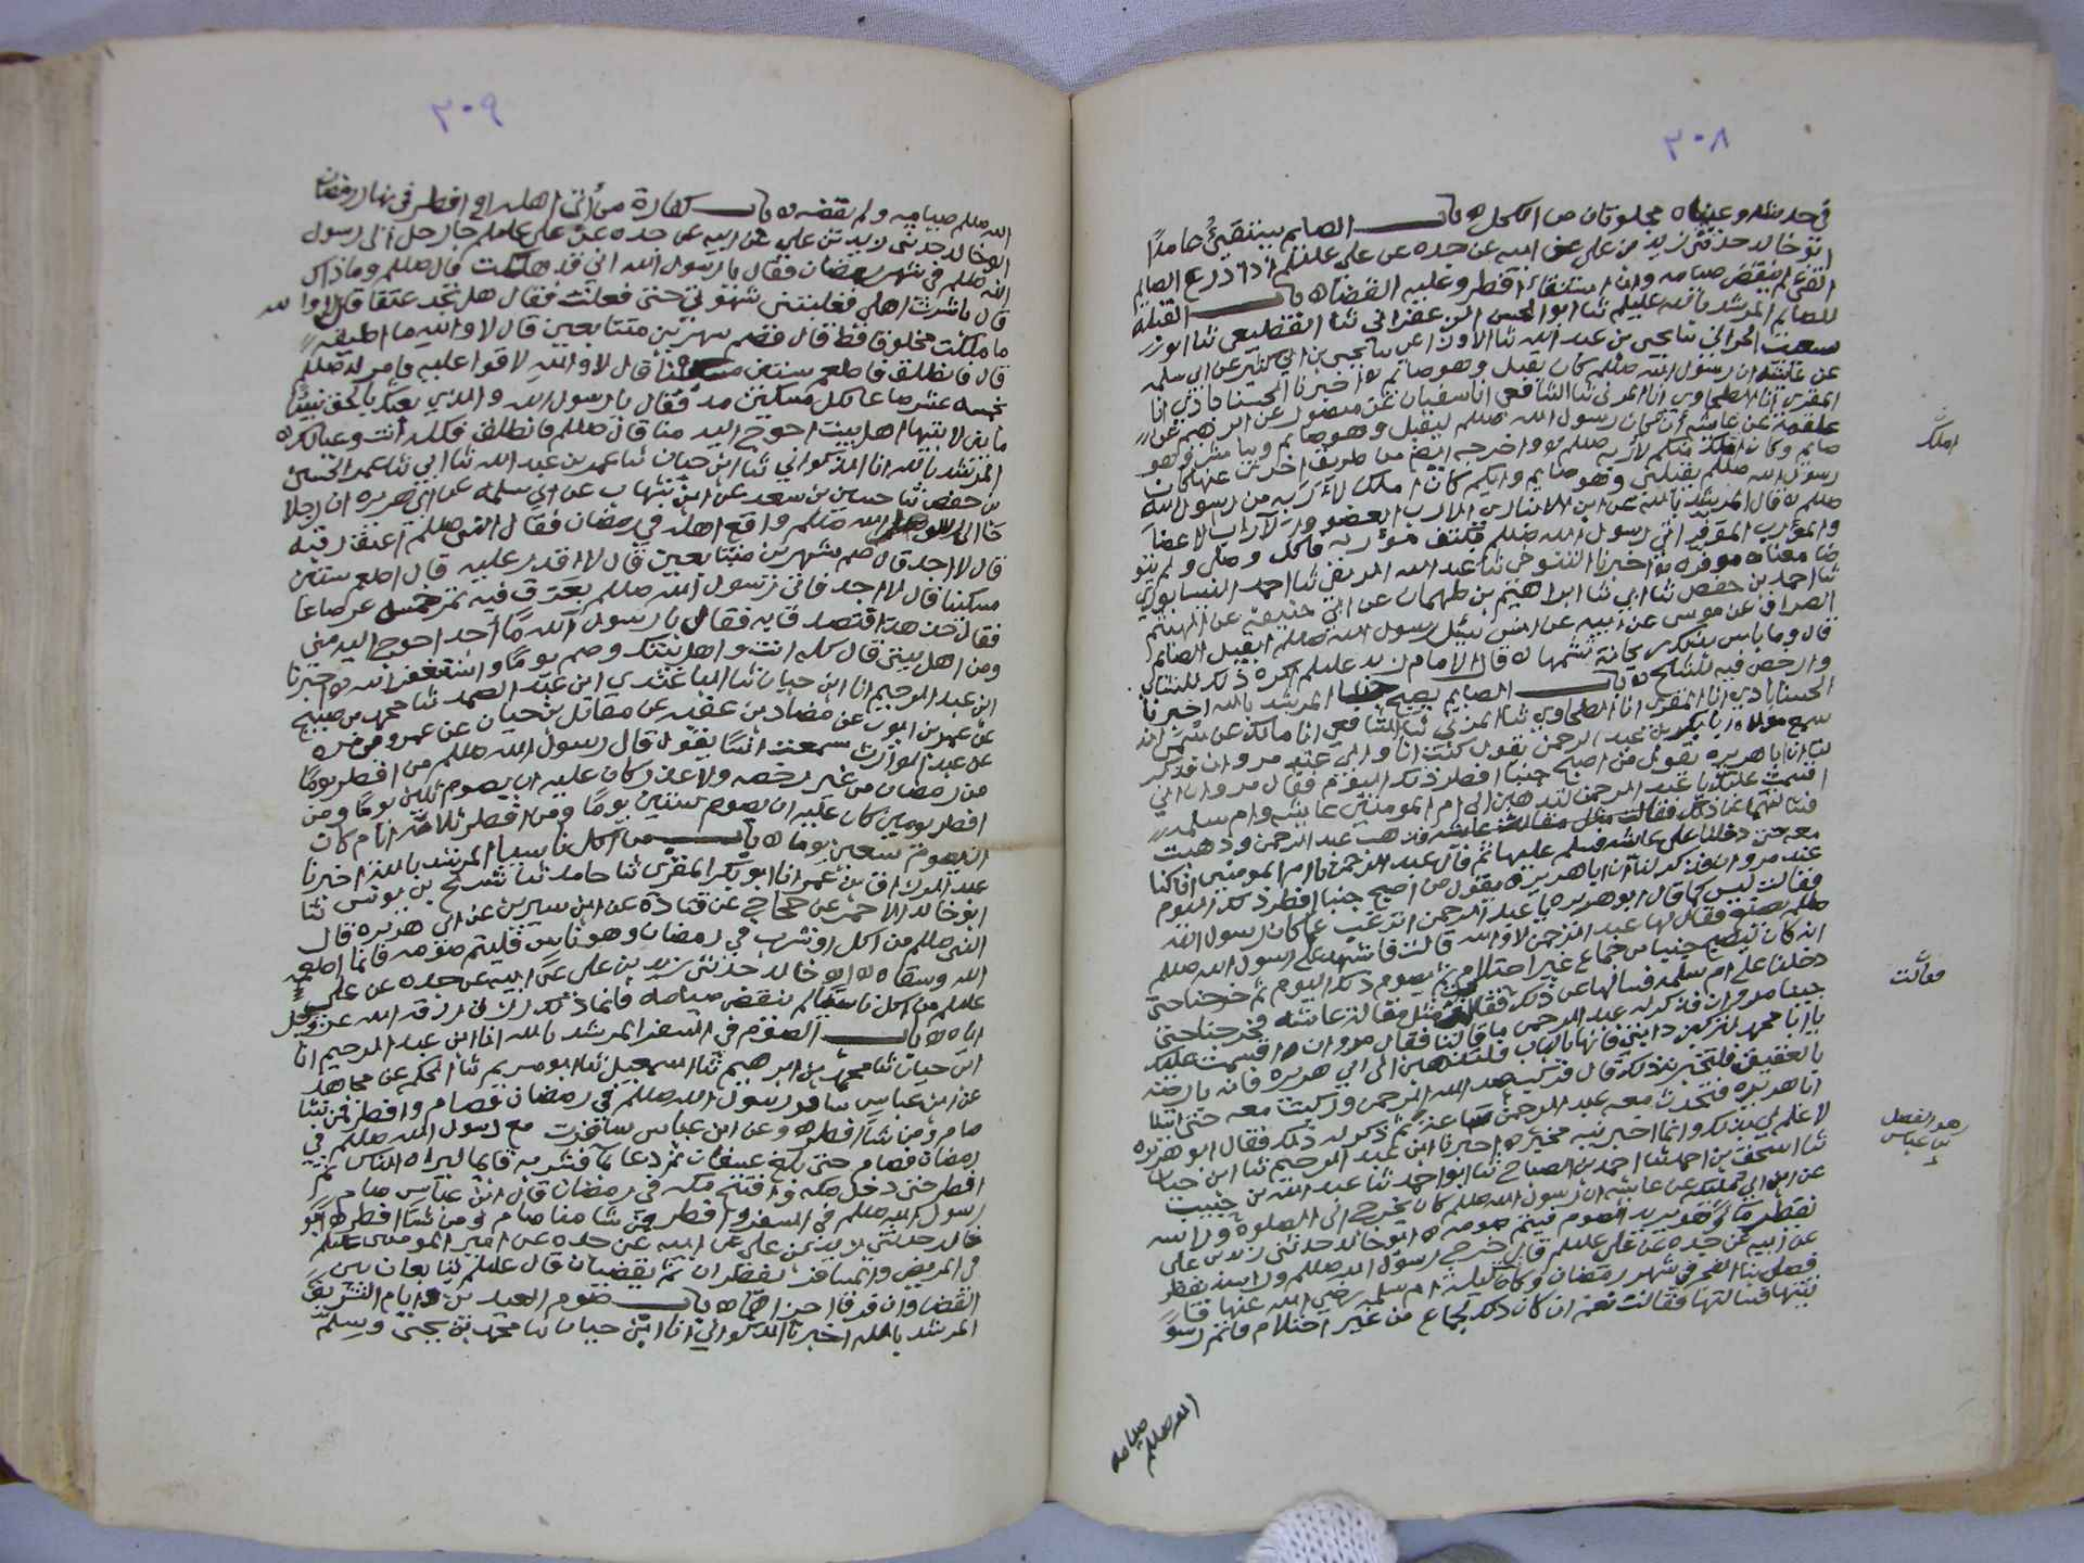 ٣٠٨
في حديثه وعيناه مملوتان من الكحل ه باب الصايم يستقيئ عامدًا
ابو خالد حدثني زيد بن علي عن ابيه عن جده عن علي عليلم اذا ذرع الصايم
القئ لم ينقض صيامه وان استقاء افطر وعليه القضا ه باب القبلة
للصايم المرشد بالله عليلم ثنا ابو الحسن
ثنا القطيعي ثنا ابو
الحراني ثنا يحيى بن عبد الله ثنا الاوزاعي ثنا يحيى بن ابي كثير عن ابي سلمه
عن عائشة ان رسول الله صللم كان يقبل وهو صايم ه اخبرنا الحسناباذي انا
المقري انا الطحاوي انا المزني ثنا الشافعي انا سفيان عن منصور عن ابرهيم عن
علقمة عن عايشه ان كان رسول الله صللم ليقبل وهو صايم ويباشر وهو
صايم وكان املككم لأربه صللم واخرجه ايضا من طريق اخرى عنها كان
رسول الله صللم يقبلني وهو صايم وايكم كان املك لأربه من رسول الله
صللم ه قال المرشد بالله عن ابن الانباري الارب العضو والآراب الاعضا
والمؤرب الموفر اتي رسول الله صللم بكتف مؤربه فاكل وصلى ولم يتو
ضا معناه موفره ه اخبرنا التنوخي ثنا عبد الله المزني ثنا احمد النيسابوري
ثنا احمد بن حفص ثنا ابي ثنا ابراهيم بن طهمان عن ابي حنيفة عن الهيثم
الصراف عن موسى عن ابيه عن انس سئل رسول الله صللم ايقبل الصايم
قال وما باس بذلك ريحانة يشمها ه قال الامام زيد عليلم اكره ذلك للشاب
وارخص فيه للشيخ ه باب الصايم يصبح جنبا المرشد بالله اخبرنا
الحسناباذي انا المقري انا الطحاوي ثنا المزني ثنا الشافعي انا مالك عن سمي انه
سمع مولاه ابا بكر بن عبد الرحمن يقول كنت انا وابي عند مروان فذكر
لنا ان ابا هريره يقول من اصبح جنبا افطر ذلك اليوم فقال مروان
اقسمت عليك يا عبد الرحمن لتذهبن الى ام المومنين عايشه وام سلمه
فتسالهما عن ذلك فذهب عبد الرحمن وذهبت
معه حتى دخلنا على عائشه فسلم عليها ثم قال عبد الرحمن يا ام المومنين انا كنا
عند مروان فذكر لنا ان ابا هريرة يقول من اصبح جنبا افطر ذلك اليوم
فقالت ليس كما قال ابو هريره يا عبد الرحمن اترغب عما كان رسول الله
صللم يصنع فقال لها عبد الرحمن لا والله قالت فاشهد على رسول الله صللم
انه كان ليصبح جنبا من جماع غير احتلام ثم يصوم ذلك اليوم ثم خرجنا حتى
دخلنا على ام سلمه فسالها عن ذلك فقالت مثل مقالة عائشه فخرجنا حتى
جينا مروان فذكر له عبد الرحمن ما قالتا فقال مروان اقسمت عليك
يا ابا محمد لتركبن دابتي فانها بالباب فلتذهبن الى ابي هريره فانه بارضه
بالعقيق فلتخبرنه ذلك قال فركب عبد الرحمن وركبت معه حتى اتينا
ابا هريره فتحدث معه عبد الرحمن ساعة ثم ذكر له ذلك فقال ابو هريره
لا علم لي بذلك وانما اخبرنيه مخبر ه اخبرنا ابن عبد الرحيم ثنا ابن حيان
ثنا اسحق بن احمد ثنا احمد بن الصباح ثنا ابو احمد ثنا عبد الله بن حبيب
عن ابن ابي مليكه عن عايشه ان رسول الله صللم كان يخرج الى الصلوة وراسه
يقطر ماءً وهو يريد الصوم فيتم صومه ه ابو خالد حدثني زيد بن علي
عن ابيه عن جده عن علي عليلم قال خرج رسول الله صللم وراسه يقطر
فصلى بنا الفجر في شهر رمضان وكانت ليلة ام سلمه رضي الله عنها فا
تيتها فسالتها فقالت نعم ان كان ذلك لجماع من غير احتلام فاتم رسو
املك
فقالت
هو الفضل
بن عباس
الله صللم
صيامه
٣٠٩
الله صللم صيامه ولم يقضه ه باب كفارة من أتى اهله او افطر في نهار رمضان
ابو خالد حدثني زيد بن علي عن ابيه عن جده عن علي عليلم جا رجل الى رسول
الله صللم في شهر رمضان فقال يا رسول الله اني قد هلكت قال صللم وما ذاك
قال باشرت اهلي فغلبتني شهوتي حتى فعلت فقال هل تجد عتقا قال لا والله
ما ملكت مخلوقا قط قال فصم شهرين متتابعين قال لا والله ما اطيقه
قال فانطلق فاطعم ستين مسكينا قال لا والله لا قوا عليه فامر له صللم
بخمسه عشر صاعا لكل مسكين مد فقال يا رسول الله والذي بعثك بالحق نبيًا
ما بين لابتيها اهل بيت احوج اليه منا قال صللم فانطلق فكله أنت وعيالك ه
المرشد بالله انا الذكواني ثنا ابن حيان ثنا عمر بن عبد الله ثنا ابي ثنا عمر
بن حفص ثنا حسين بن سعد عن ابن شهاب عن ابي سلمه عن ابي هريره ان رجلا
جا الى رسول الله صللم واقع اهله في رمضان فقال النبي صللم اعتق رقبه
قال لا اجد قال صم شهرين متتابعين قال لا اقدر عليه قال اطعم ستين
مسكينا قال لا اجد فاتى رسول الله صللم بعرق فيه تمر خمسه عشر صاعا
فقال خذ هذا فتصدق به فقال يا رسول الله ما أجد احوج اليه مني
ومن اهل بيتي قال كله انت واهل بيتك وصم يومًا واستغفر الله ه اخبرنا
ابن عبد الرحيم انا ابن حيان ثنا الباغندي
ثنا محمد بن صبيح
عن عمر بن ايوب عن مصاد بن عقبه عن مقاتل بن حيان عن عمرو بن مره
عن عبد الوارث سمعت انسًا يقول قال رسول الله صللم من افطر يومًا
من رمضان من غير رخصه ولا عذر كان عليه ان يصوم ثلثين يومًا ومن
افطر يومين كان عليه ان يصوم ستين يومًا ومن افطر ثلاثة ايام كان
تسعين يوما ه باب من اكل ناسيا المرشد بالله اخبرنا
عبد الرزاق بن عمر انا ابو بكر المقري ثنا حامد ثنا شريح بن يونس ثنا
ابو خالد الاحمر عن حجاج عن قتادة عن ابن سيرين عن ابي هريره قال
النبي صللم من اكل او شرب في رمضان وهو ناس فليتم صومه فانما اطعمه
الله وسقاه ه ابو خالد حدثني زيد بن علي عن ابيه عن جده عن علي
عليلم من اكل ناسيا لم ينقض صيامه فانما ذلك رزق رزقه الله عز وجل
اياه ه باب الصوم في السفر المرشد بالله انا ابن عبد الرحيم انا
ابن حيان ثنا محمد بن ابرهيم ثنا اسمعيل ثنا ابو مريم ثنا الحكم عن مجاهد
عن ابن عباس سافر رسول الله صللم في رمضان فصام وافطر فمن شا
صام ومن شاء افطر ه وعن ابن عباس سافرت مع رسول الله صللم في
رمضان فصام حتى بلغ عسفان ثم دعا بما فشربه قايما ليراه الناس ثم
افطر حتى دخل مكه وافتتح مكه في رمضان قال ابن عباس صام
رسول الله صللم في السفر وافطر فمن شا منا صام ومن شا افطر ه ابو
خالد حدثني زيد بن علي عن ابيه عن جده عن امير المومنين عليلم
في المريض والمسافر يفطران ثم يقضيان قال عليلم يتابعان بين
القضا وان فرقا اجزاهما ه باب صوم العيدين وايام التشريق
المرشد بالله اخبرنا الذكواني انا ابن حيان ثنا محمد بن يحيى